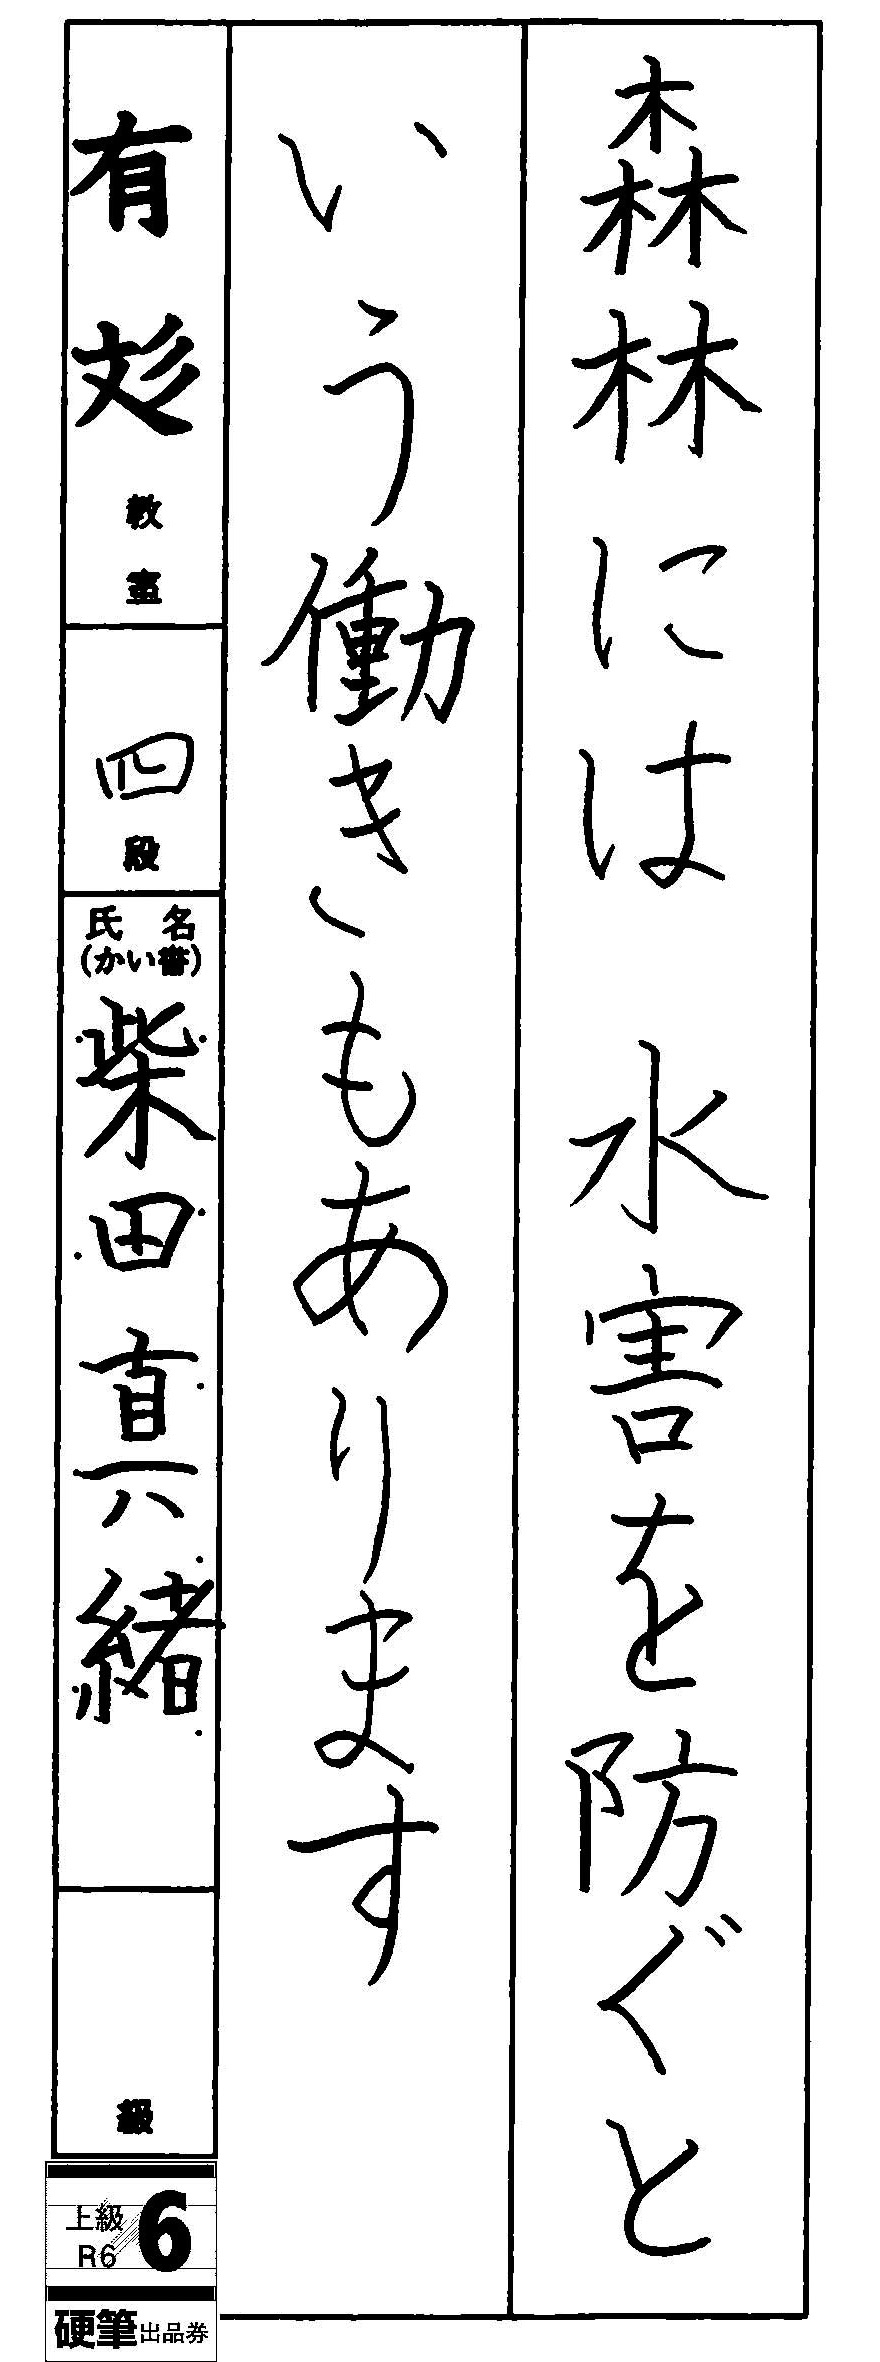 森林には 水害を防ぐと
いう働きもあります
有 教室
四段
氏名
(かい書)
柴田真緒
級
上級
R6
6
硬筆出品券